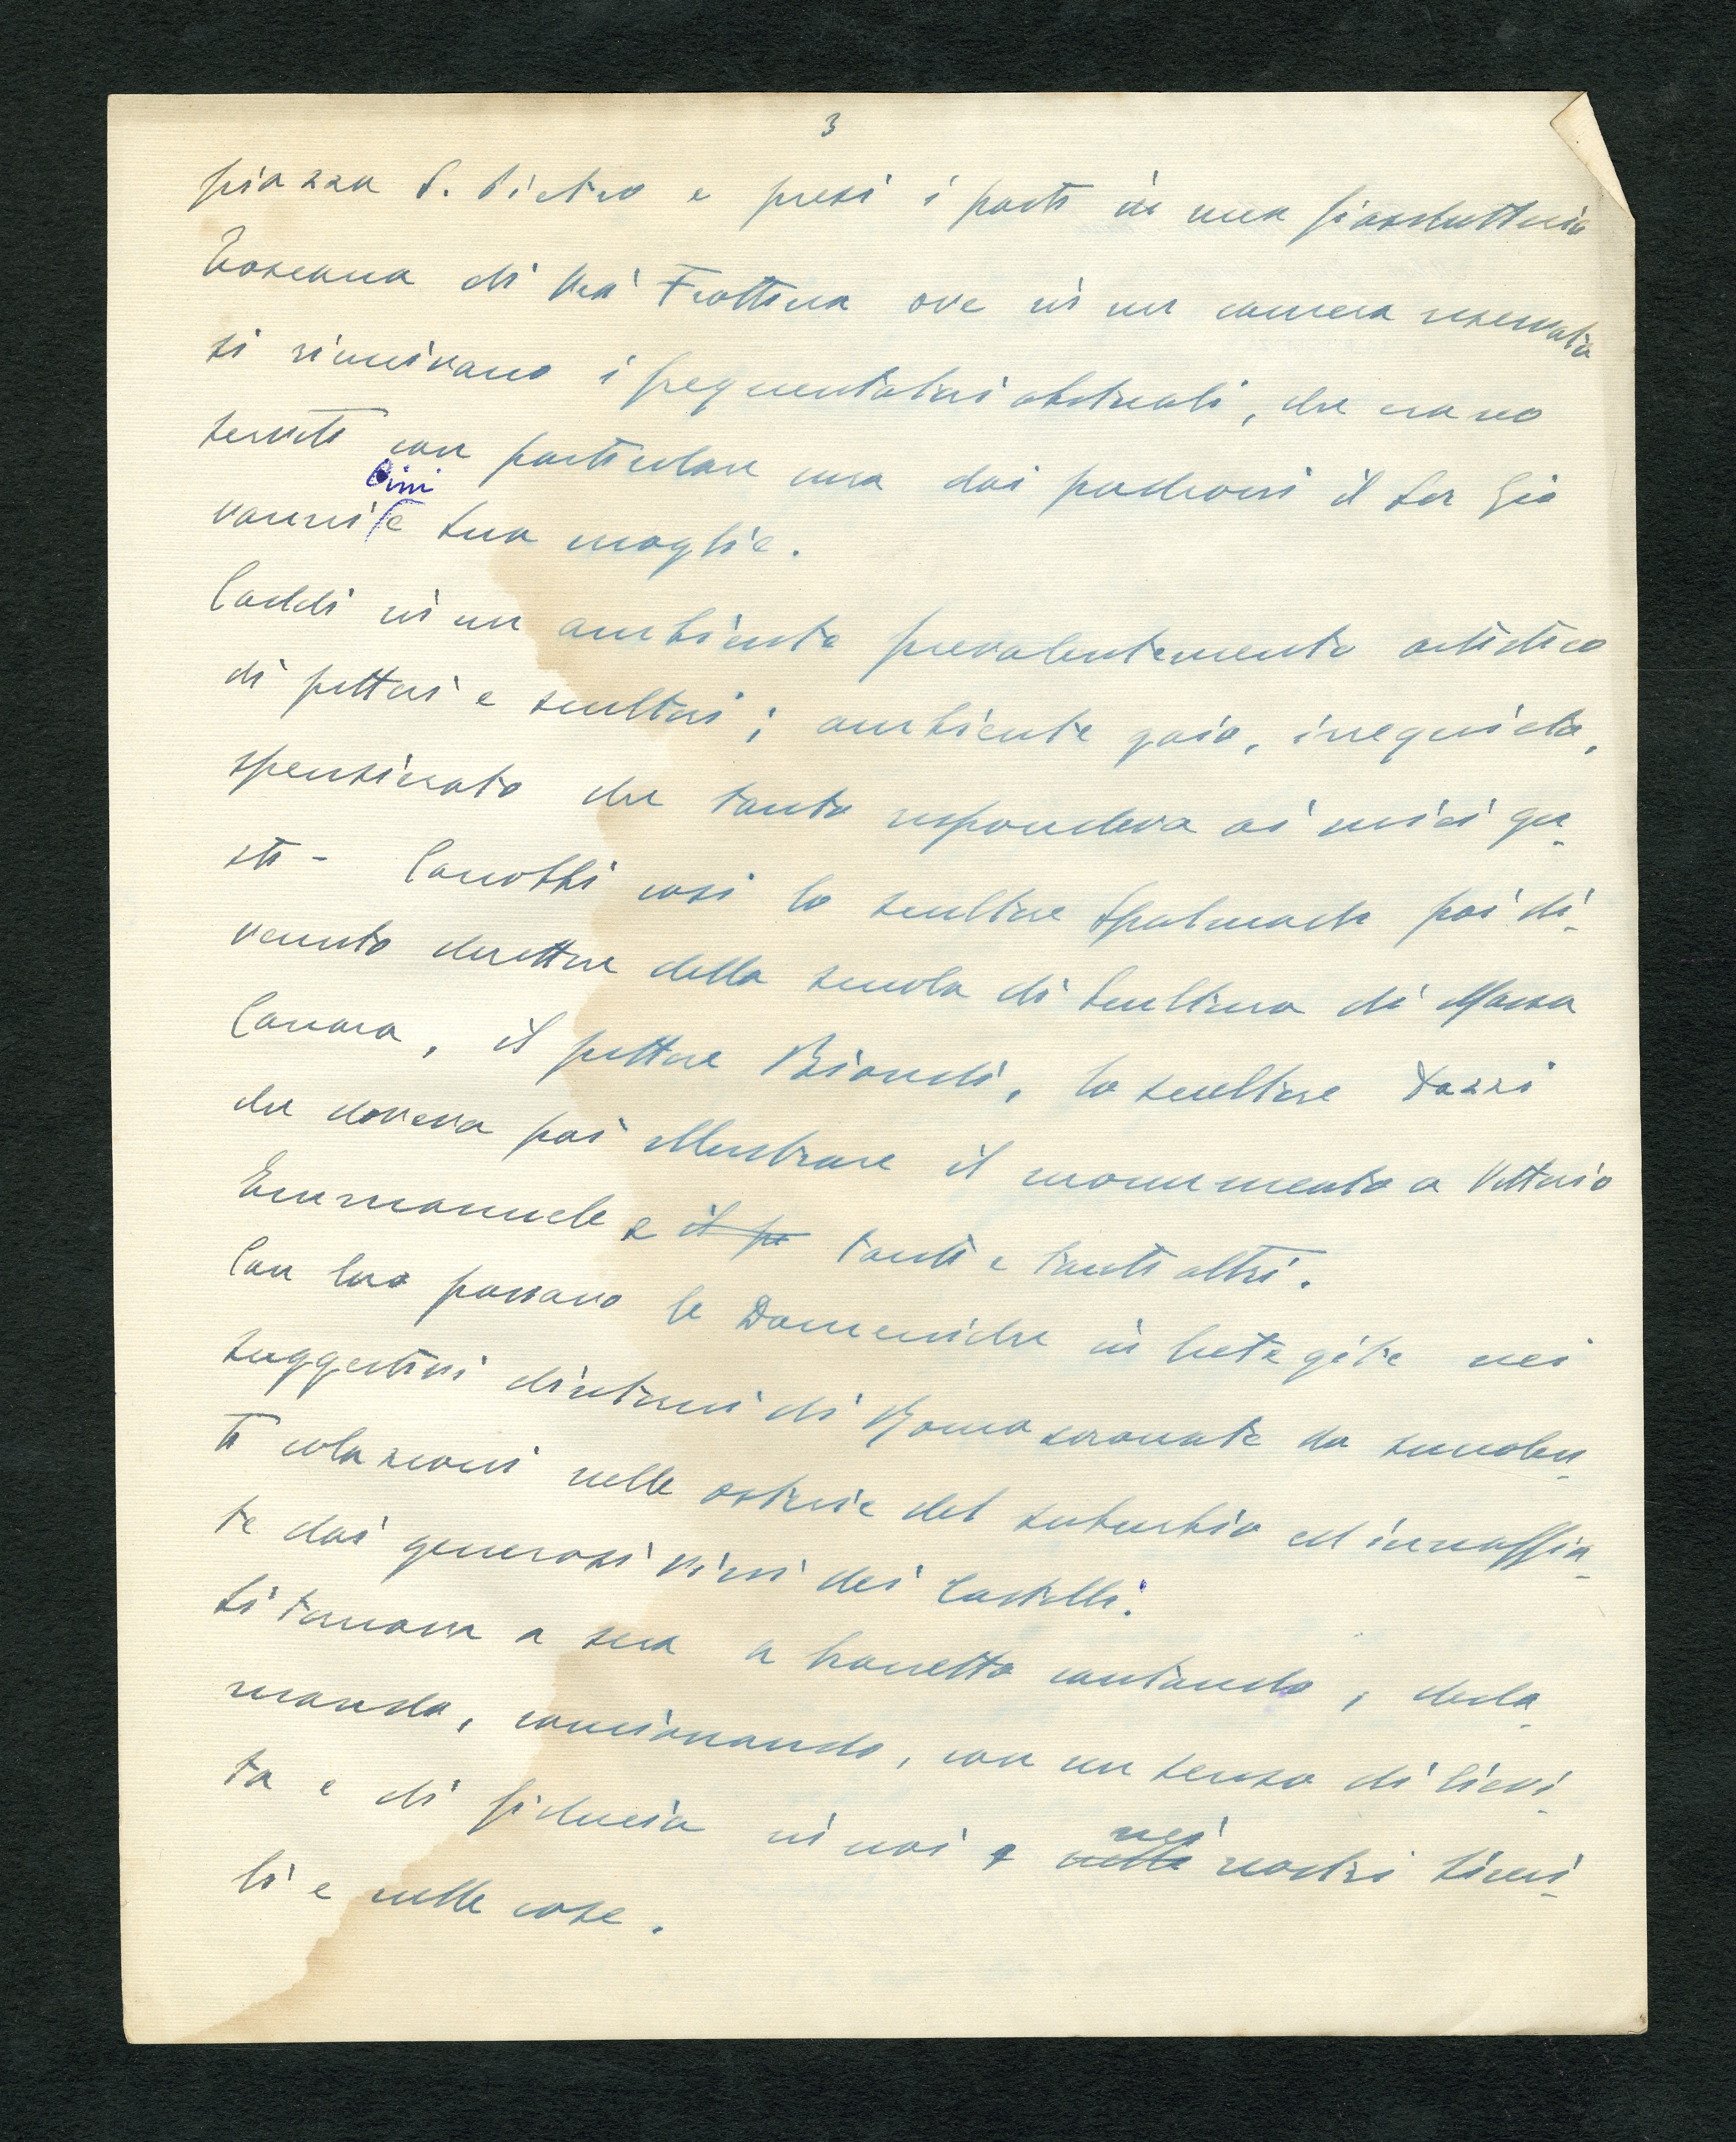 3
piazza S. Pietro e presi i pasti in una fiaschetteria
Toscana di Via Frattina ove in un camera riservata
si riunivano i frequentatori abituali, che erano
serviti con particolare cura dai padroni il Sor Gio
vanni Cini e sua moglie.
Caddi in un ambiente prevalentemente artistico
di pittori e scultori; ambiente gaio, irrequieto,
spensierato che tanto rispondeva ai miei gu-
sti - Conobbi così lo scultore Spalmach poi di-
venuto direttore della scuola di Scultura di Massa
Carrara, il pittore Biondi, lo scultore Dazzi
che doveva poi illustrare il monumento a Vittorio
Emmanuele e il pi tanti e tanti altri.
Con loro passavo le Domeniche in liete gite nei
suggestivi dintorni di Roma coronate da succolen-
ti colazioni nelle osterie del suburbio ed innaffia-
te dai generosi vini dei Castelli.
Si tornava a sera a braccetto cantando, decla-
mando, concionando, con un senso di lievi-
tà e di fiducia in noi e nelle nei nostri simi-
li e nelle cose.